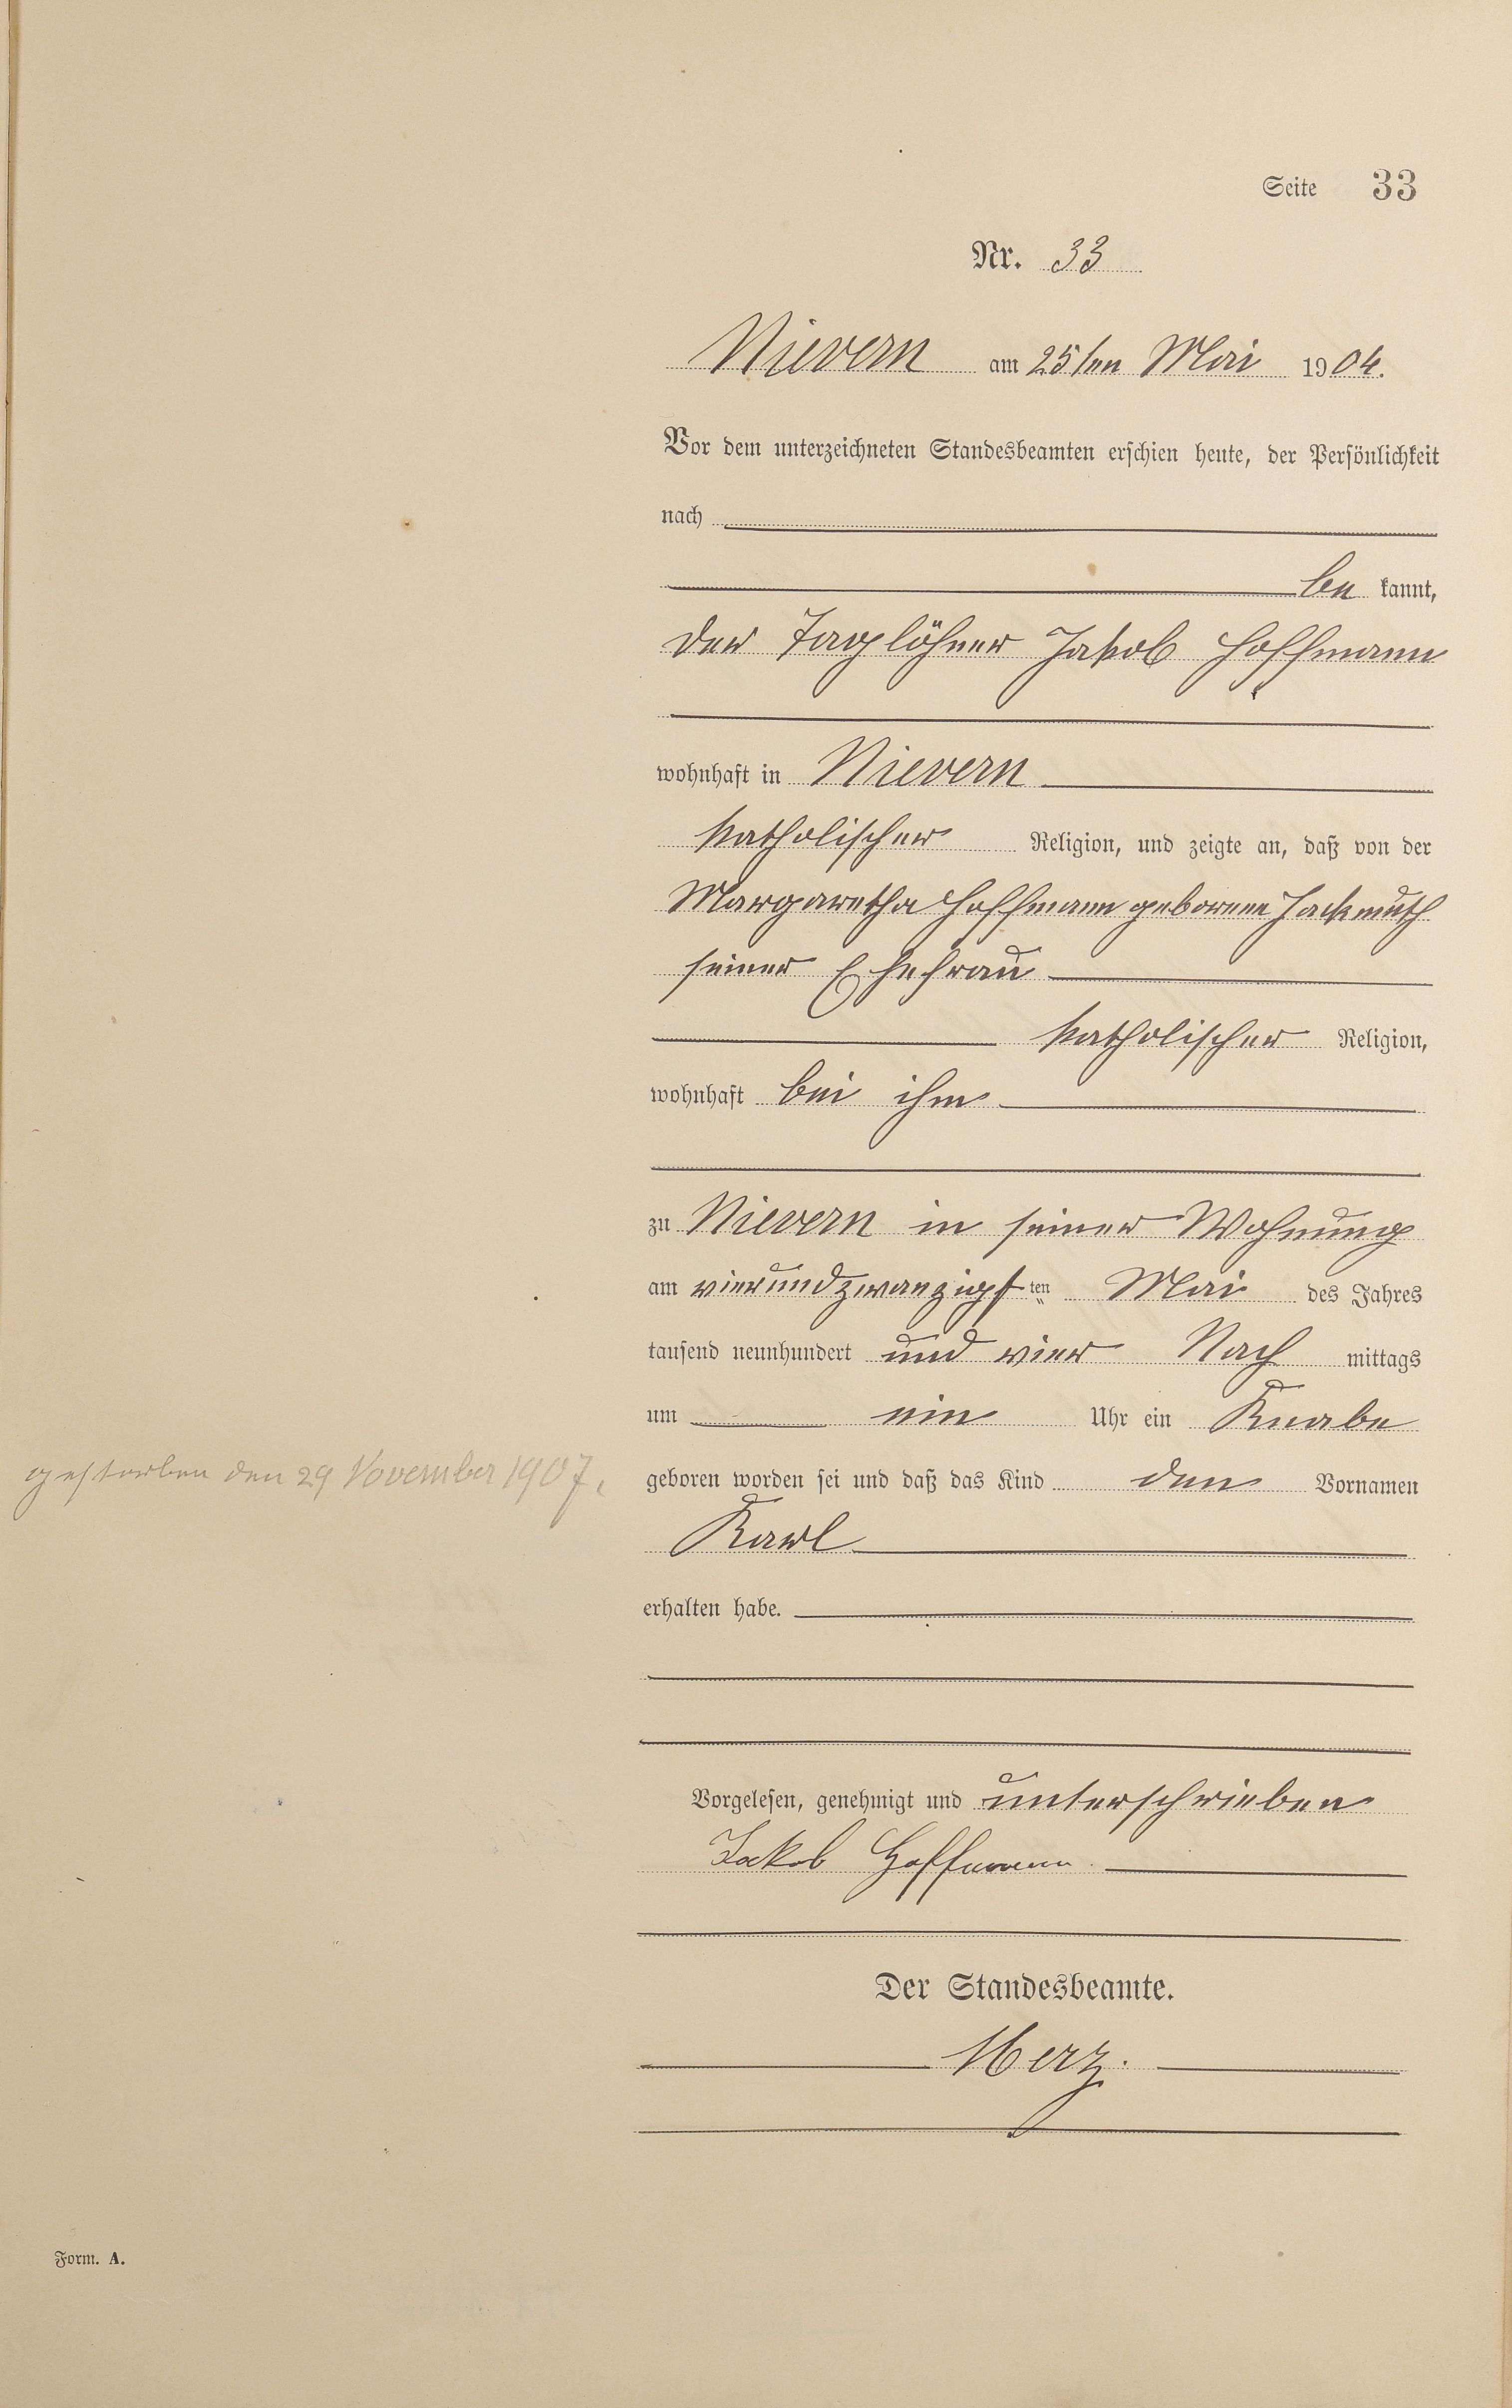 Seite 33
Nr. 33
Nievern am 25ten Mai 1904.
Vor dem unterzeichneten Standesbeamten erschien heute, der Persönlichkeit
nach
be kannt,
der Taglöhner Jakob Hoffmann
wohnhaft in Nievern
katholischer Religion, und zeigte an, daß von der
Margaretha Hoffmann geborene Jackmuth
seiner Ehefrau
katholischer Religion,
wohnhaft bei ihm
zu Nievern in seiner Wohnung
am vierundzwanzigsten Mai des Jahres
tausend neunhundert und vier Nach mittags
um ein Uhr ein Knabe
gestorben den 29 November 1907.
geboren worden sei und daß das Kind den Vornamen
Karl
erhalten habe.
Vorgelesen, genehmigt und unterschrieben
Jakob Hoffmann.
Der Standesbeamte.
Merz.
Form. A.